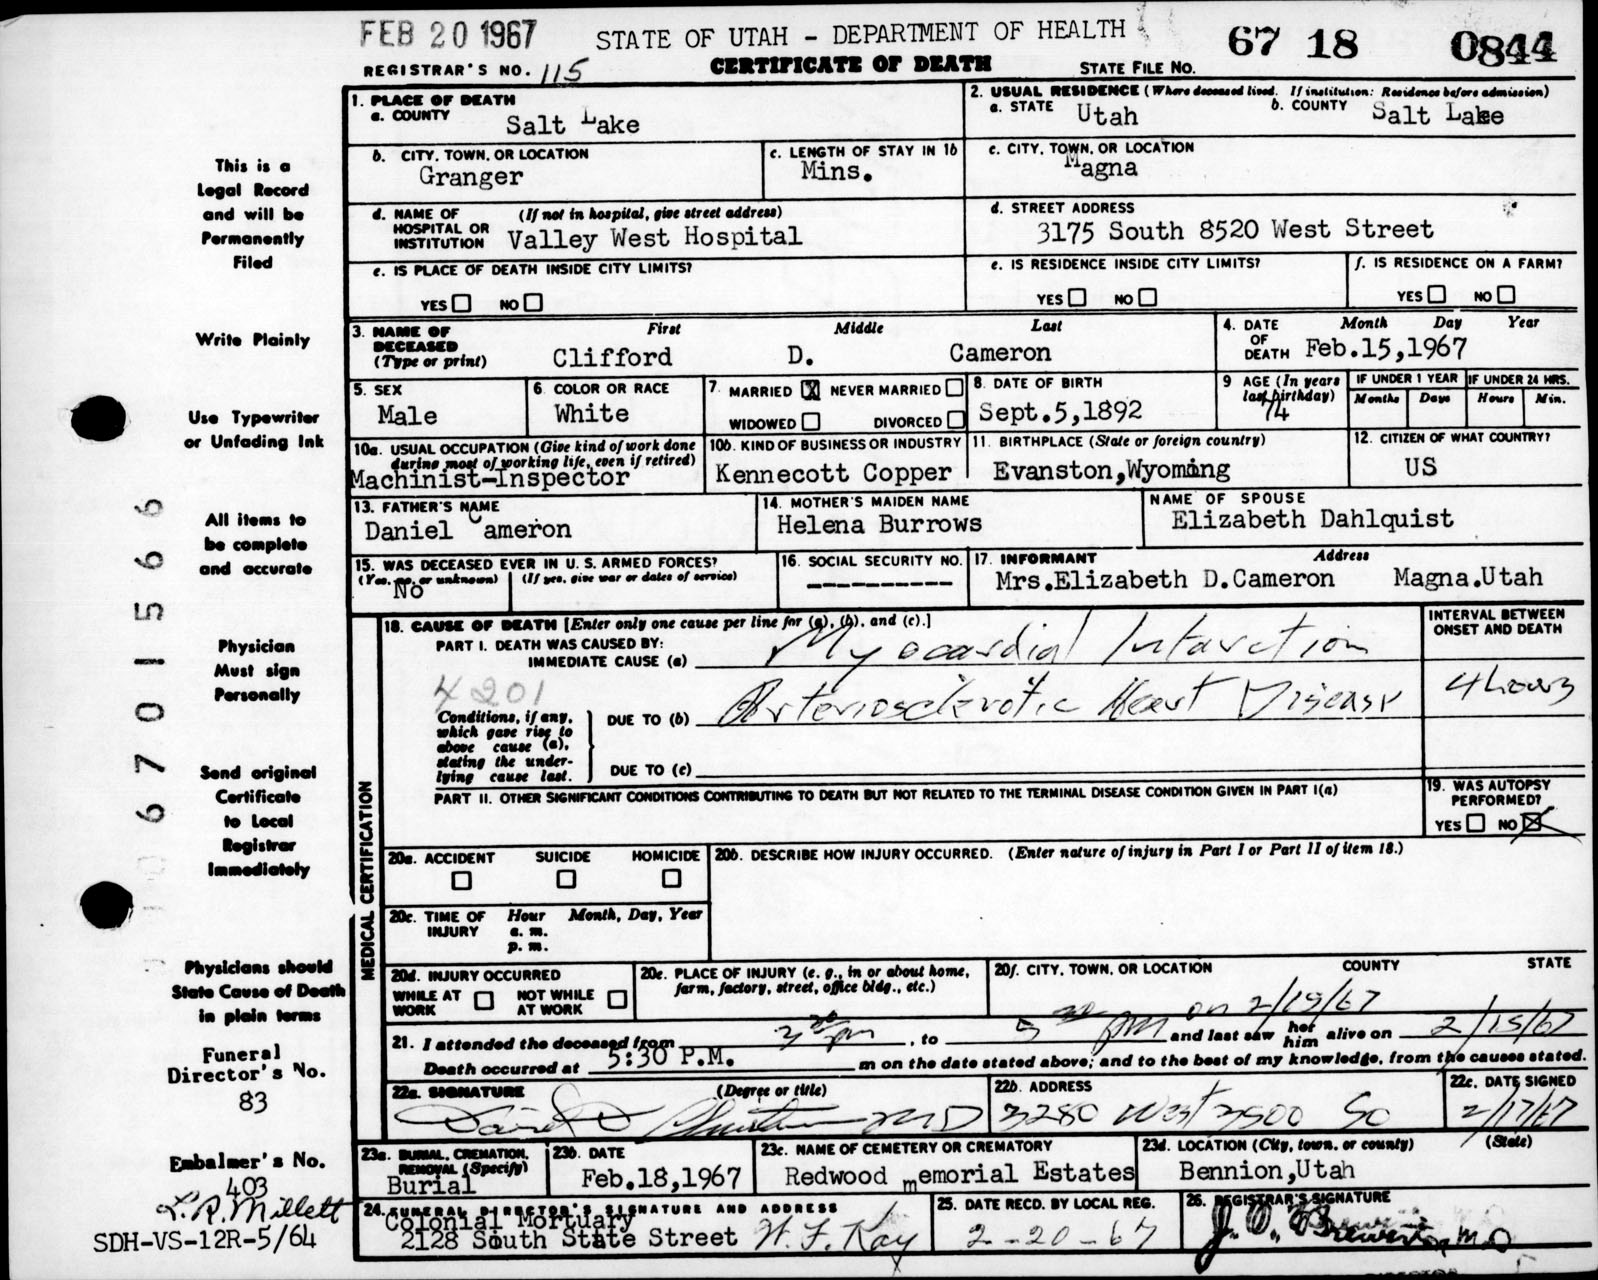 FEB 20 1967
STATE OF UTAH - DEPARTMENT OF HEALTH
67 18 0844
REGISTRAR'S NO. 115
CERTIFICATE OF DEATH
STATE FILE NO.
1. PLACE OF DEATH
a. COUNTY Salt Lake
2. USUAL RESIDENCE (Where deceased lived. If institution: Residence before admission)
a. STATE Utah b. COUNTY Salt Lake
b. CITY, TOWN, OR LOCATION
Granger
c. LENGTH OF STAY IN 1b
Mins.
c. CITY, TOWN, OR LOCATION
Magna
d. NAME OF HOSPITAL OR INSTITUTION (If not in hospital, give street address)
Valley West Hospital
d. STREET ADDRESS
3175 South 8520 West Street
e. IS PLACE OF DEATH INSIDE CITY LIMITS?
YES NO
e. IS RESIDENCE INSIDE CITY LIMITS?
YES NO
f. IS RESIDENCE ON A FARM?
YES NO
3. NAME OF DECEASED (Type or print) First Middle Last
Clifford D. Cameron
4. DATE OF DEATH Month Day Year
Feb.15,1967
5. SEX
Male
6. COLOR OR RACE
White
7. MARRIED X NEVER MARRIED
WIDOWED DIVORCED
8. DATE OF BIRTH
Sept.5,1892
9 AGE (In years last birthday)
74
IF UNDER 1 YEAR
Months Days
IF UNDER 24 HRS.
Hours Min.
10a. USUAL OCCUPATION (Give kind of work done during most of working life, even if retired)
Machinist-Inspector
10b. KIND OF BUSINESS OR INDUSTRY
Kennecott Copper
11. BIRTHPLACE (State or foreign country)
Evanston,Wyoming
12. CITIZEN OF WHAT COUNTRY?
US
13. FATHER'S NAME
Daniel Cameron
14. MOTHER'S MAIDEN NAME
Helena Burrows
NAME OF SPOUSE
Elizabeth Dahlquist
15. WAS DECEASED EVER IN U. S. ARMED FORCES?
(Yes, no, or unknown) (If yes, give war or dates of service)
No
16. SOCIAL SECURITY NO.
----------
17. INFORMANT Address
Mrs.Elizabeth D.Cameron Magna.Utah
MEDICAL CERTIFICATION
18. CAUSE OF DEATH [Enter only one cause per line for (a), (b), and (c).]
INTERVAL BETWEEN ONSET AND DEATH
PART I. DEATH WAS CAUSED BY:
IMMEDIATE CAUSE (a) Myocardial Infarction
4201
4 hours
Conditions, if any, which gave rise to above cause (a), stating the underlying cause last.
DUE TO (b) Arteriosclerotic Heart Disease
DUE TO (c)
PART II. OTHER SIGNIFICANT CONDITIONS CONTRIBUTING TO DEATH BUT NOT RELATED TO THE TERMINAL DISEASE CONDITION GIVEN IN PART I(a)
19. WAS AUTOPSY PERFORMED?
YES NO X
20a. ACCIDENT SUICIDE HOMICIDE
20b. DESCRIBE HOW INJURY OCCURRED. (Enter nature of injury in Part I or Part II of item 18.)
20c. TIME OF INJURY Hour Month, Day, Year
a. m.
p. m.
20d. INJURY OCCURRED
WHILE AT WORK NOT WHILE AT WORK
20e. PLACE OF INJURY (e. g., in or about home, farm, factory, street, office bldg., etc.)
20f. CITY, TOWN, OR LOCATION COUNTY STATE
21. I attended the deceased from 3 30 pm, to 5 30 PM on 2/15/67 and last saw her him alive on 2/15/67
Death occurred at 5:30 P.M. m on the date stated above; and to the best of my knowledge, from the causes stated.
22a. SIGNATURE (Degree or title)
MD
22b. ADDRESS
3280 West 3500 So
22c. DATE SIGNED
2/17/67
23a. BURIAL, CREMATION, REMOVAL (Specify)
Burial
23b. DATE
Feb.18,1967
23c. NAME OF CEMETERY OR CREMATORY
Redwood memorial Estates
23d. LOCATION (City, town, or county) (State)
Bennion,Utah
24. FUNERAL DIRECTOR'S SIGNATURE AND ADDRESS
Colonial Mortuary
2128 South State Street W. F. Kay
25. DATE RECD. BY LOCAL REG.
2-20-67
26. REGISTRAR'S SIGNATURE
This is a
Legal Record
and will be
Permanently
Filed
Write Plainly
Use Typewriter
or Unfading Ink
All items to
be complete
and accurate
Physician
Must sign
Personally
Send original
Certificate
to Local
Registrar
Immediately
Physicians should
State Cause of Death
in plain terms
Funeral
Director's No.
83
Embalmer's No.
403
L. R. Millett
SDH-VS-12R-5/64
6701566